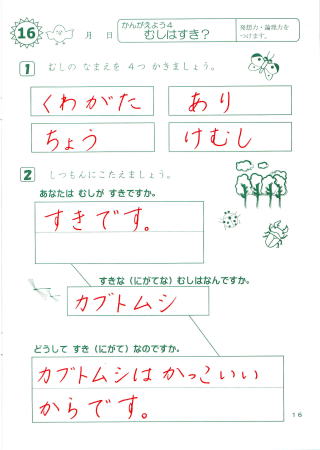 16
月　日
かんがえよう4
むしはすき？
発想力・論理力を
つけます。
1 むしの なまえを 4つ かきましょう。
くわがた　あり
ちょう　けむし
2 しつもんにこたえましょう。
あなたは むしが すきですか。
すきです。
すきな（にがてな）むしはなんですか。
カブトムシ
どうして すき（にがて）なのですか。
カブトムシは かっこいい
からです。
16